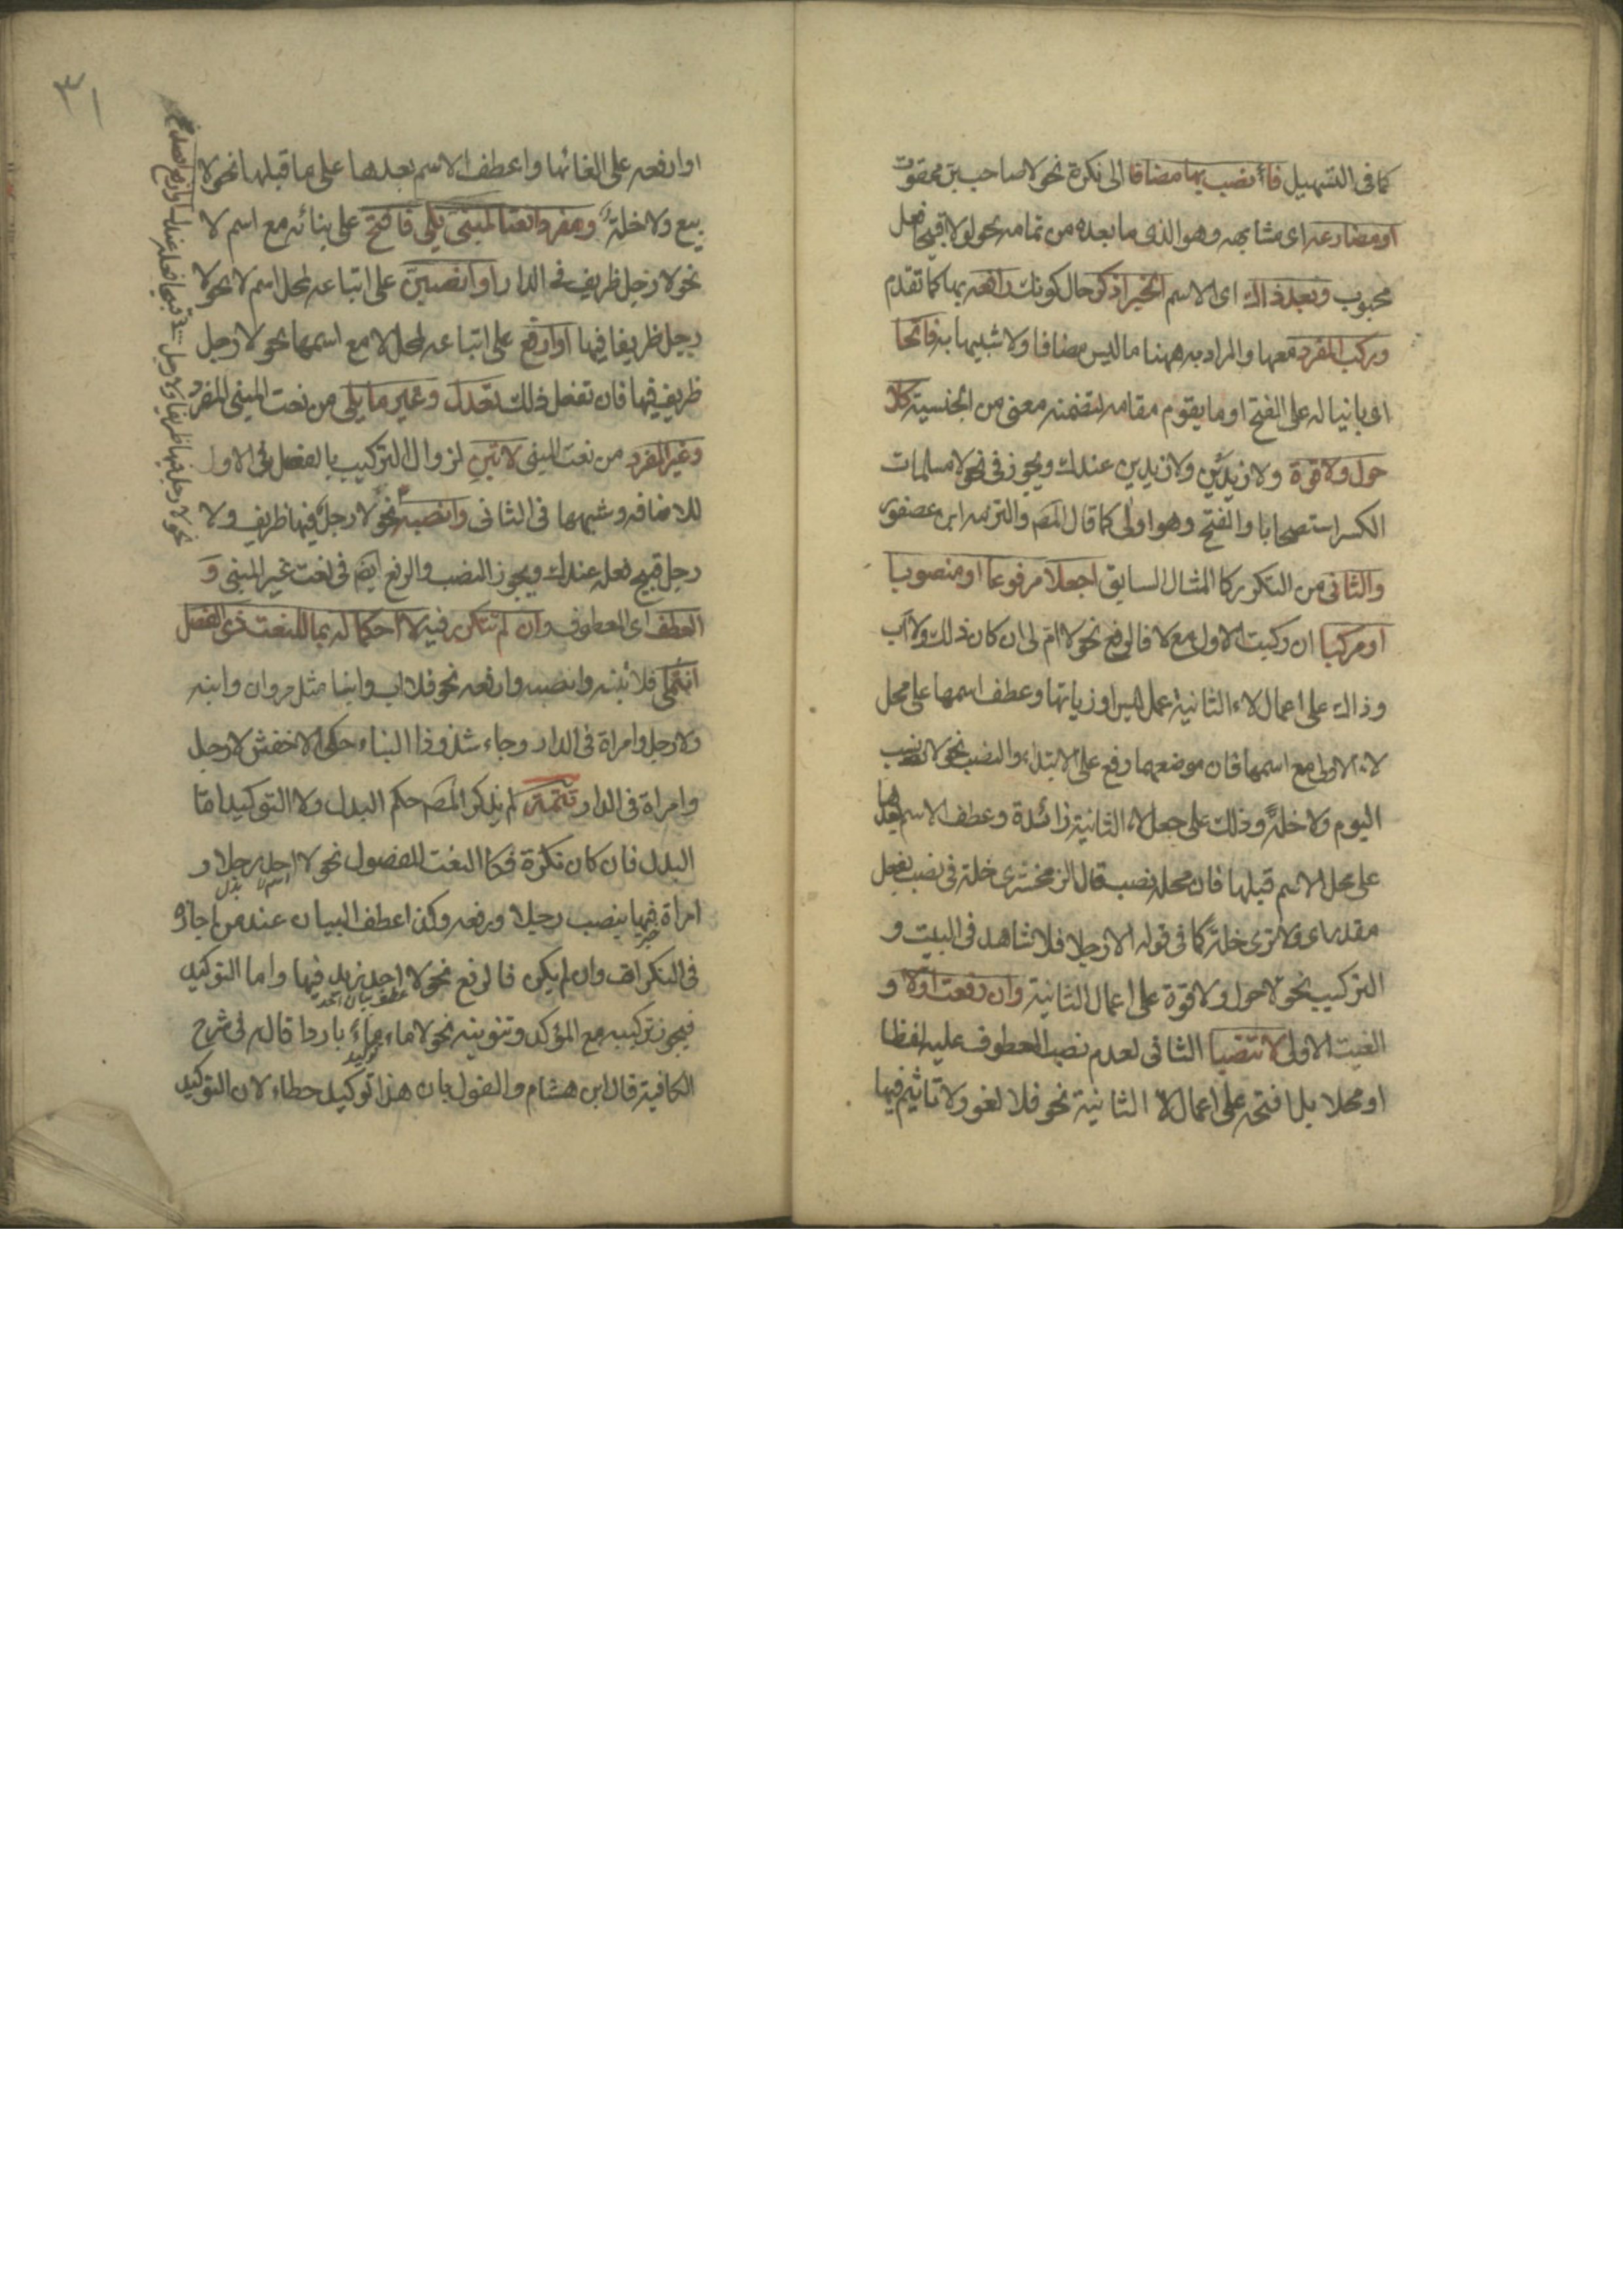 كما فى التسهيل فانصب بها مضافا الى نكرة نحو لا صاحب بر ممقوت
او مضارعه اى مشابهه وهو الذى ما بعده من تمامه نحو لا قبيحا فعله
محبوب وبعد ذاك اى الاسم الخبر اذكر حال كونك رافعه بها كما تقدم
وركب المفرد معها والمراد به ههنا ما ليس مضافا ولا شبيها به فاتحا
اى بانيا له على الفتح او ما يقوم مقامه لتضمنه معنى من الجنسية كلا
حول ولا قوة ولا زيدين ولا زيدين عندك ويجوز فى نحو لا مسلمات
الكسر استصحابا والفتح وهو اولى كما قال المصَ والتزمه ابن عصفور
والثانى من التكرير كالمثال السابق اجعلا مرفوعا او منصوبا
او مركبا ان ركبت الاول مع لا فالرفع نحو لا ام لى ان كان ذلك ولا اب
وذاك على اعمال لاء الثانية عمل ليس او زيادتها وعطف اسمها على محل
لاء الاولى مع اسمها فان موضعهما رفع على الابتداء والنصب نحو لا نسب
اليوم ولا خلةً وذلك على جعل لاء الثانية زائدة وعطف الاسم بعدها
على محل الاسم قبلها فان محله نصب قال الزمخشرى خلة فى نصب بفعل
مقدر اى ولا ترى خلة كما فى قوله الا رجلا فلا شاهد فى البيت و
التركيب نحو لا حول ولا قوة على اعمال الثانية وان رفعت اولا و
الغيت الاولى لا تنصبا الثانى لعدم نصب المعطوف عليه لفظا
او محلا بل افتحه على اعمال لا الثانية نحو فلا لغو ولا تاثيم فيها
٣١
او ارفعه على الغائها واعطف الاسم بعدها على ما قبلها نحو لا
بيع ولا خلة ومفردا نعتا لمبنى يلى فافتح على بنائه مع اسم لا
نحو لا رجل ظريف فى الدار او انصبن على اتباعه لمحل اسم لا نحو لا
رجل ظريفا فيها او ارفع على اتباعه لمحل لا مع اسمها نحو لا رجل
ظريف فيها فان تفعل ذلك تعدل وغير ما يلى من نعت المبنى المفرد
وغير المفرد من نعت المبنى لا تبن لزوال التركيب بالفصل فى الاول
للاضافه وشبهها فى الثانى وانصبه نحو لا رجل فيها ظريف ولا
رجل قبيح فعله عندك ويجوز النصب والرفع ايضَ فى نعت غير المبنى و
العطف اى المعطوف وان لم تتكرر فيه لا احكما له بما للنعت ذى الفصل
انتمى فلا تبنه وانصبه وارفعه نحو فلا اب وابنا مثل مروان وابنه
ولا رجل وامراة فى الدار وجاء شذوذا البناء حكى الاخفش لا رجل
وامراة فى الدار تتمة لم يذكر المصَ حكم البدل ولا التوكيد اما
البدل فان كان نكرة فكالنعت المفصول نحو لا احد رجلا و
امراة فيها ينصب رجلا ورفعه وكذا عطف البيان عند من اجازه
فى النكرات وان لم يكن فالرفع نحو لا احد زيد فيها واما التوكيد
عطف بيان احد
فيجوز تركيبه مع المؤكد وتنوينه نحو لا ماء ماءً باردا قاله فى شرح
توكيد
الكافية قال ابن هشام والقول بان هذا توكيد خطاء لان التوكيد